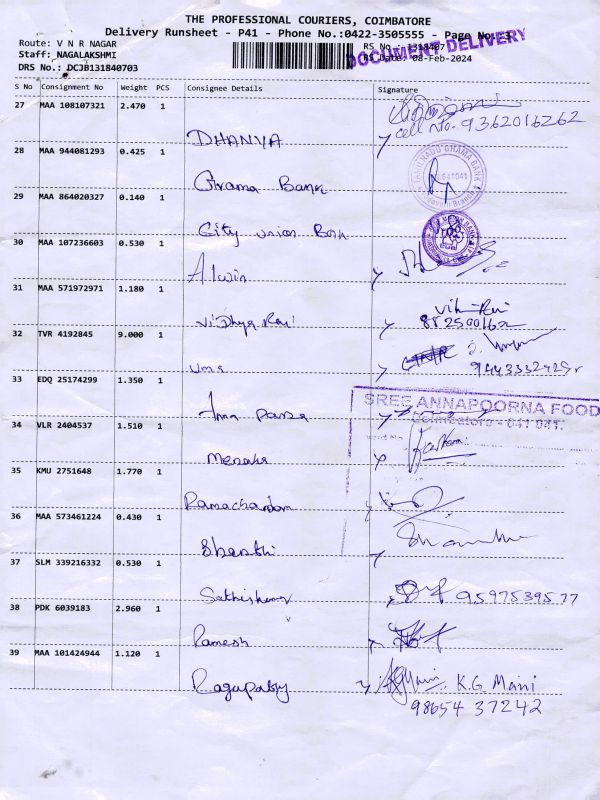 THE PROFESSIONAL COURIERS, COIMBATORE
Delivery Runsheet - P41 - Phone No.:0422-3505555 - Page No: 3
DOCUMENT DELIVERY
Route: V N R NAGAR
RS No : 1318407
Staff: NAGALAKSHMI
RS Date: 08-Feb-2024
DRS No.: DCJB131840703
S No Consignment No Weight PCS Consignee Details Signature
27 MAA 108107321 2.470 1
cell No. 9362016262
DHANYA
28 MAA 944081293 0.425 1
TAMILNADU GRAMA BANK
Grama Bank
29 MAA 864020327 0.140 1
City union Bank
30 MAA 107236603 0.530 1
Alwin
31 MAA 571972971 1.180 1
Vidhya Rani
32 TVR 4192845 9.000 1
Uma
33 EDQ 25174299 1.350 1
SREE ANNAPOORNA FOOD
Coimbatore - 641 041.
34 VLR 2404537 1.510 1
Menaka
35 KMU 2751648 1.770 1
Ramachandran
36 MAA 573461224 0.430 1
Shanthi
37 SLM 339216332 0.530 1
Sathishkumar
9597539577
38 PDK 6039183 2.960 1
Ramesh
39 MAA 101424944 1.120 1
Ragupathy
K.G Mani
98654 37242